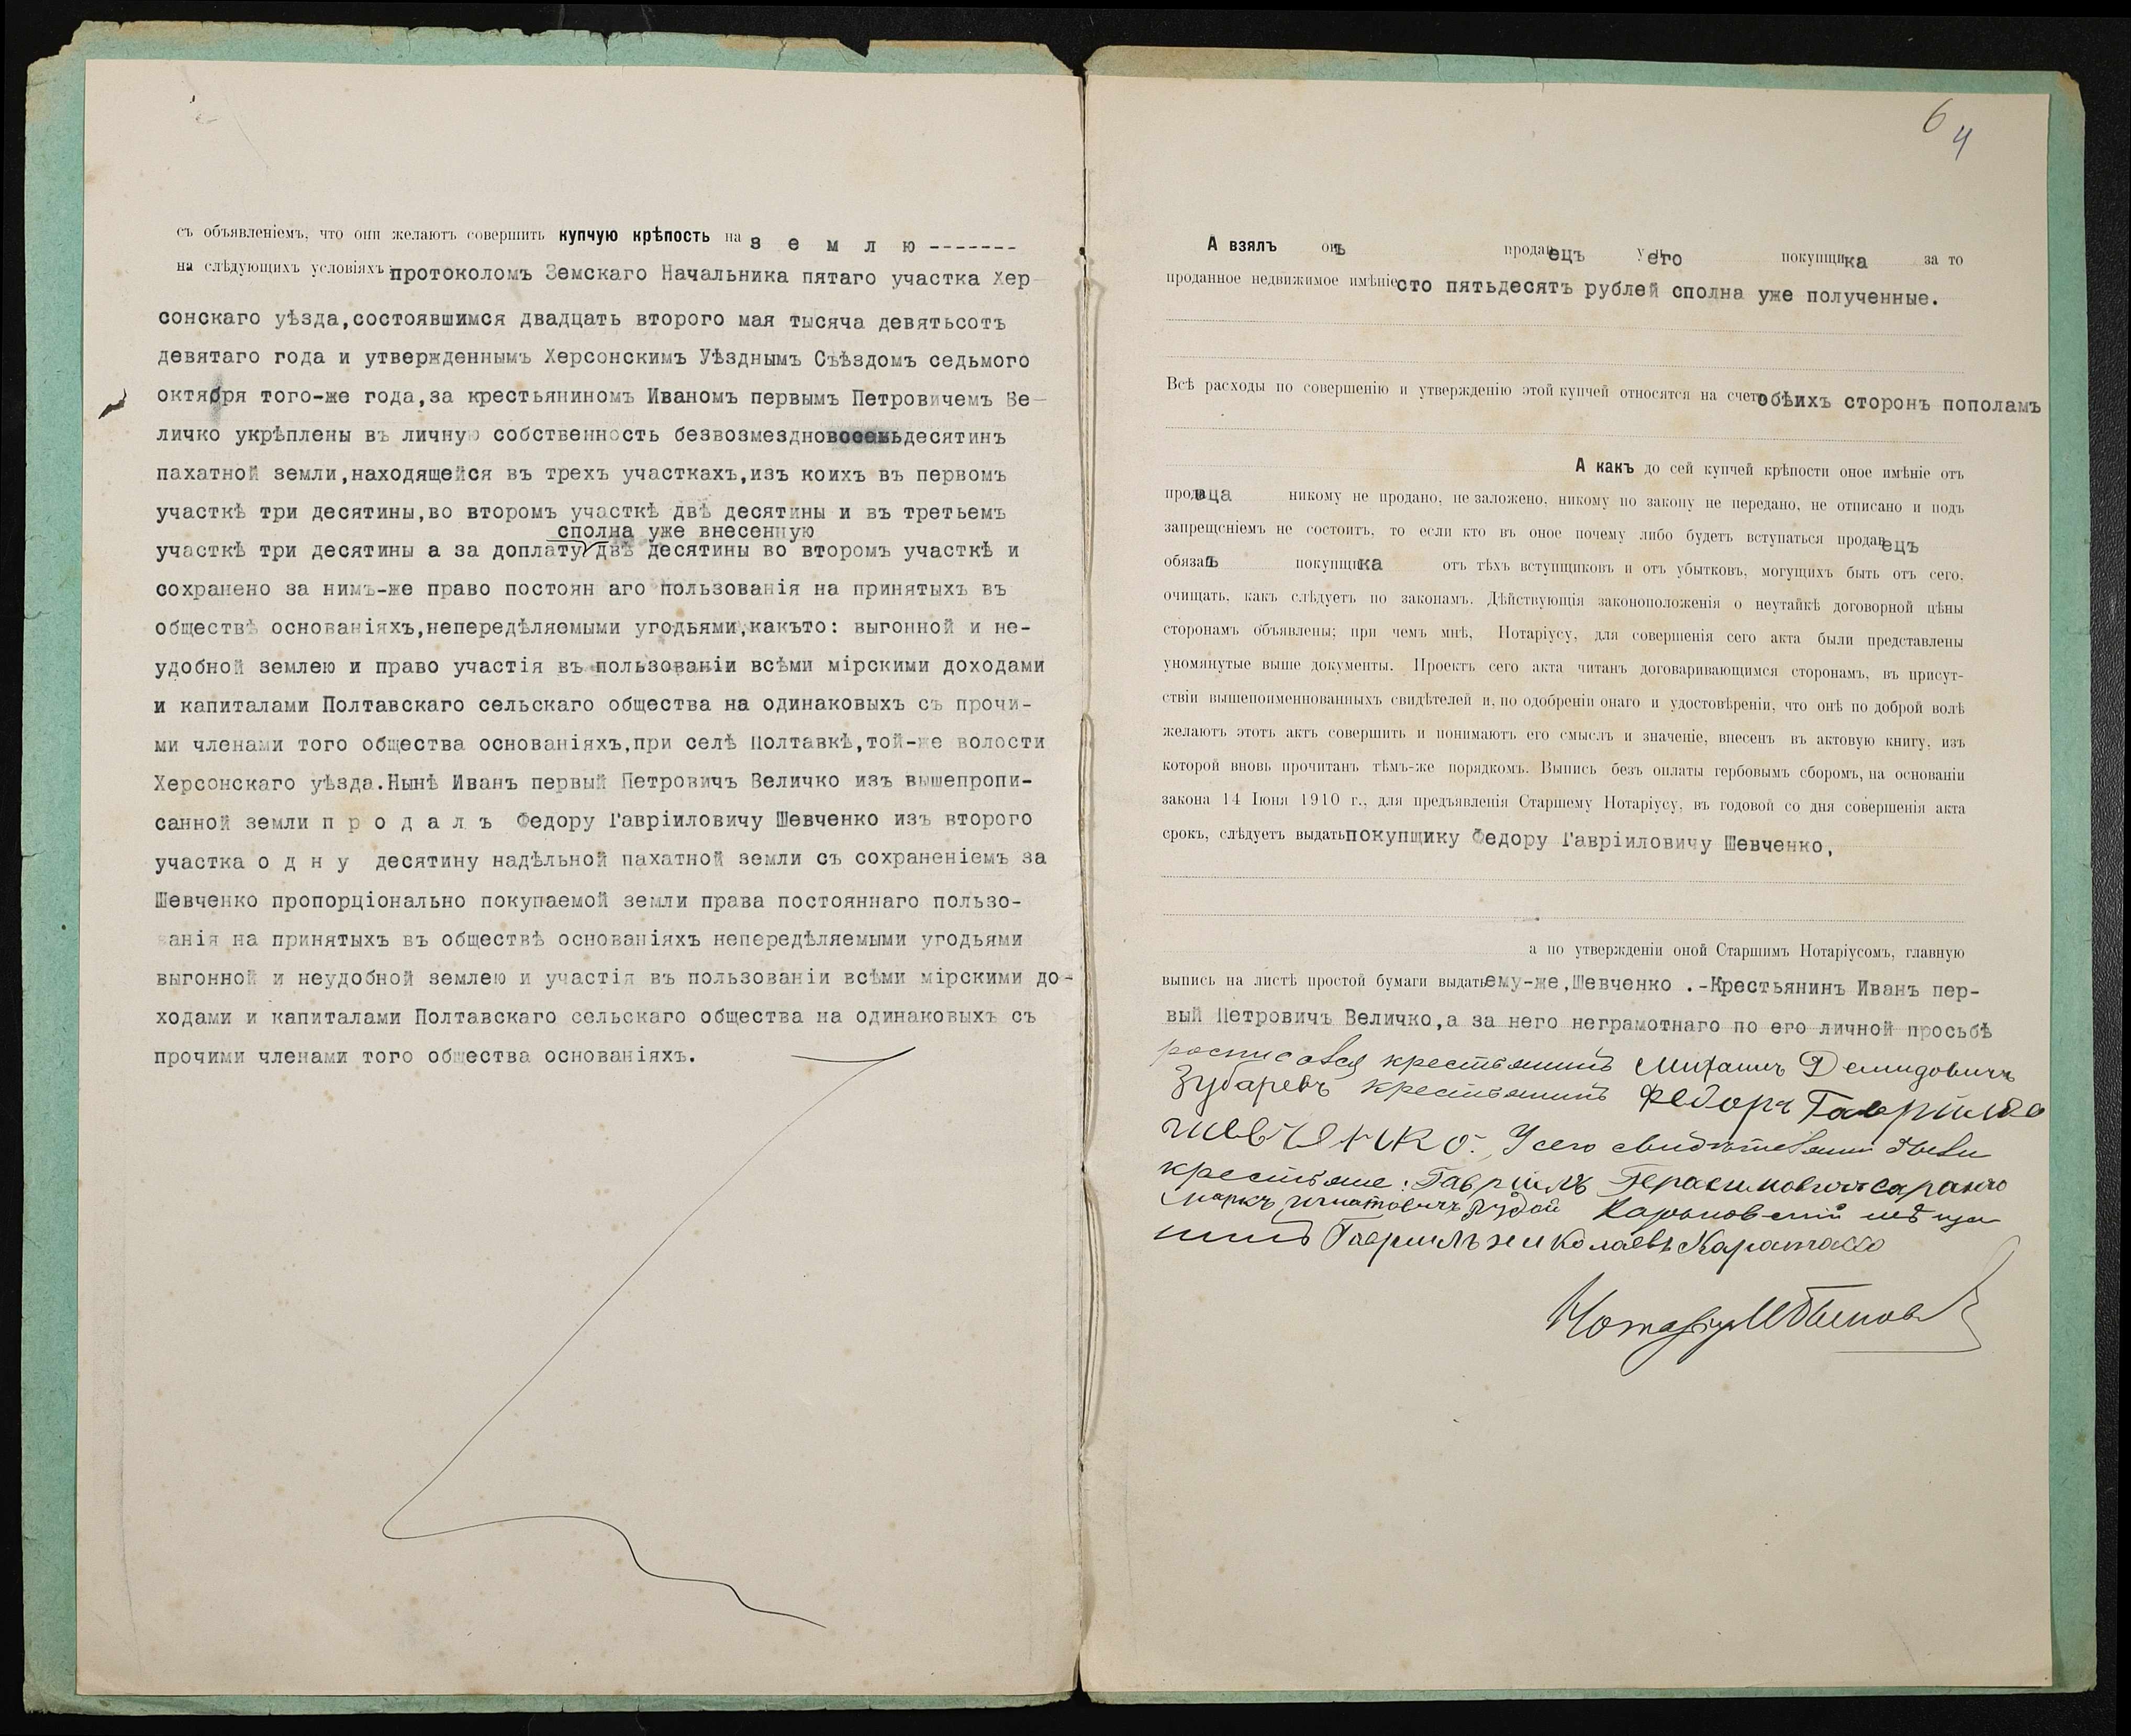 съ объявленіемъ, что они желаютъ совершить купчую крѣпость на з е м л ю -------
на слѣдующихъ условіяхъ: протоколомъ Земскаго Начальника пятаго участка Хер-
сонскаго уѣзда,состоявшимся двадцать второго мая тысяча девятьсотъ
девятаго года и утвержденнымъ Херсонскимъ Уѣзднымъ Съѣздомъ седьмого
октября того-же года,за крестьяниномъ Иваномъ первымъ Петровичемъ Ве-
личко укрѣплены въ личную собственность безвозмездно восемь десятинъ
пахатной земли,находящейся въ трехъ участкахъ,изъ коихъ въ первомъ
участкѣ три десятины,во второмъ участкѣ двѣ десятины и въ третьемъ
сполна уже внесенную
участкѣ три десятины а за доплату двѣ десятины во второмъ участкѣ и
сохранено за нимъ-же право постоян аго пользованія на принятыхъ въ
обществѣ основаніяхъ,непередѣляемыми угодьями,какъто: выгонной и не-
удобной землею и право участія въ пользованіи всѣми мірскими доходами
и капиталами Полтавскаго сельскаго общества на одинаковыхъ съ прочи-
ми членами того общества основаніяхъ,при селѣ Полтавкѣ,той-же волости
Херсонскаго уѣзда.Нынѣ Иванъ первый Петровичъ Величко изъ вышепропи-
санной земли п р о д а л ъ Федору Гавріиловичу Шевченко изъ второго
участка о д н у десятину надѣльной пахатной земли съ сохраненіемъ за
Шевченко пропорціонально покупаемой земли права постояннаго пользо-
ванія на принятыхъ въ обществѣ основаніяхъ непередѣляемыми угодьями
выгонной и неудобной землею и участія въ пользованіи всѣми мірскими до-
ходами и капиталами Полтавскаго сельскаго общества на одинаковыхъ съ
прочими членами того общества основаніяхъ.
6
4
А взялъ онъ продавецъ у него покупщика за то
проданное недвижимое имѣніе сто пятьдесятъ рублей сполна уже полученные.
Всѣ расходы по совершенію и утвержденію этой купчей относятся на счетъ обѣихъ сторонъ пополамъ
А какъ до сей купчей крѣпости оное имѣніе отъ
продавца никому не продано, не заложено, никому по закону не передано, не отписано и подъ
запрещеніемъ не состоитъ, то если кто въ оное почему либо будетъ вступаться продавецъ
обязанъ покупщика отъ тѣхъ вступщиковъ и отъ убытковъ, могущихъ быть отъ сего,
очищать, какъ слѣдуетъ по законамъ. Дѣйствующія законоположенія о неутайкѣ договорной цѣны
сторонамъ объявлены; при чемъ мнѣ, Нотаріусу, для совершенія сего акта были представлены
упомянутые выше документы. Проектъ сего акта читанъ договаривающимся сторонамъ, въ присут-
ствіи вышепоименнованныхъ свидѣтелей и, по одобреніи онаго и удостовѣреніи, что онѣ по доброй волѣ
желаютъ этотъ актъ совершить и понимаютъ его смыслъ и значеніе, внесенъ въ актовую книгу, изъ
которой вновь прочитанъ тѣмъ-же порядкомъ. Выпись безъ оплаты гербовымъ сборомъ, на основаніи
закона 14 Іюня 1910 г., для предъявленія Старшему Нотаріусу, въ годовой со дня совершенія акта
срокъ, слѣдуетъ выдать покупщику Федору Гавріиловичу Шевченко,
а по утвержденіи оной Старшимъ Нотаріусомъ, главную
выпись на листѣ простой бумаги выдать ему-же,Шевченко .-Крестьянинъ Иванъ пер-
вый Петровичъ Величко,а за него неграмотнаго по его личной просьбѣ
росписался крестьянинъ Михаилъ Демидовичъ
Зубаревъ крестьянинъ Федоръ Гавриилов
Шевченко. У сего свидѣтелями были
крестьяне: Гавріилъ Герасимовичъ
Маркъ Игнатовичъ Рудой Харьковскій мѣща
нинъ Гавриилъ Николаевъ
Нотаріусъ